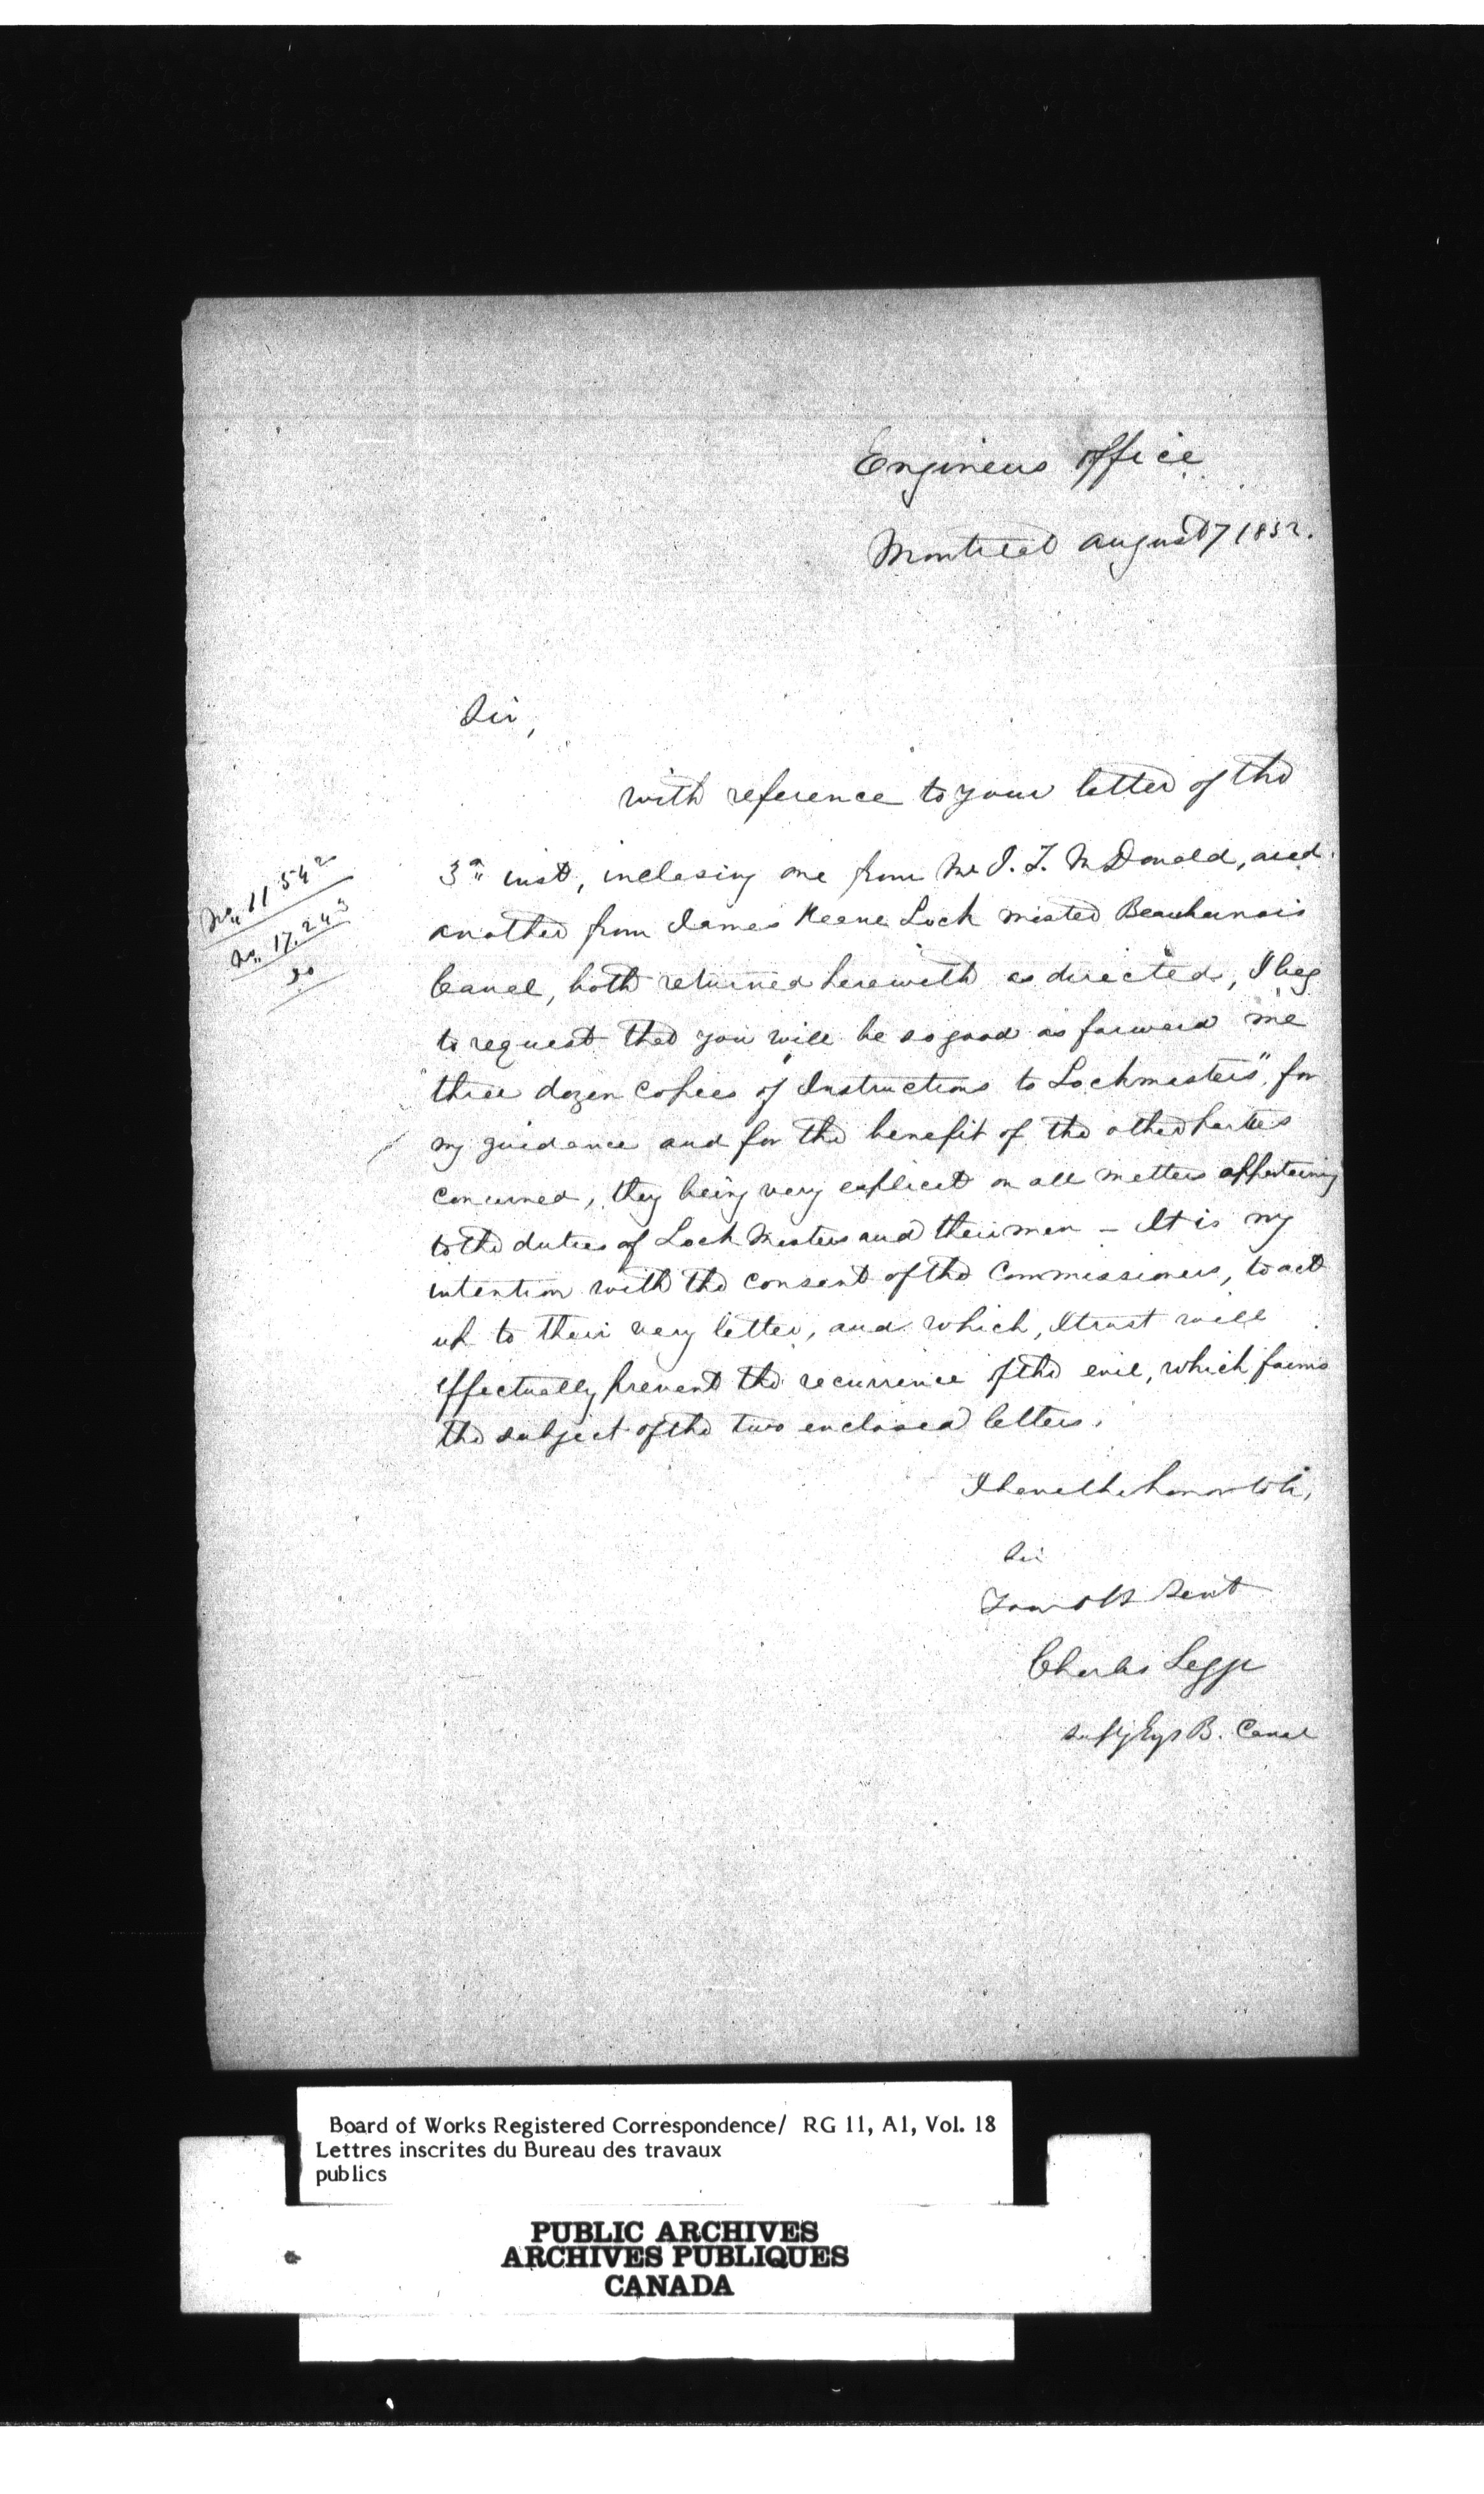 Engineers Office
Montreal August 7 1852.
Sir,
with reference to your letter of the
3rd inst, inclosing one from Mr J. T. McDonald, and
another from James Keane Lock Master Beauharnois
Canal, both returned herewith as directed, I beg
to request that you will be so good as forward me
"three dozen copies of Instructions to Lockmasters", for
my guidance and for the benefit of the other parties
concerned, they being very explicit on all matters appertaining
to the duties of Lock Masters and their men – It is my
intention with the consent of the Commissioners, to act
up to their very letter, and which, I trust will
effectually prevent the recurrence of the evil, which forms
the subject of the two enclosed letters.
I have the honor to be,
Sir
Your Obt Servt
Charles Legge
B. Canal
No. 11.542
No. 17.243
Board of Works Registered Correspondence/ RG 11, A1, Vol. 18
Lettres inscrites du Bureau des travaux
publics
PUBLIC ARCHIVES
ARCHIVES PUBLIQUES
CANADA